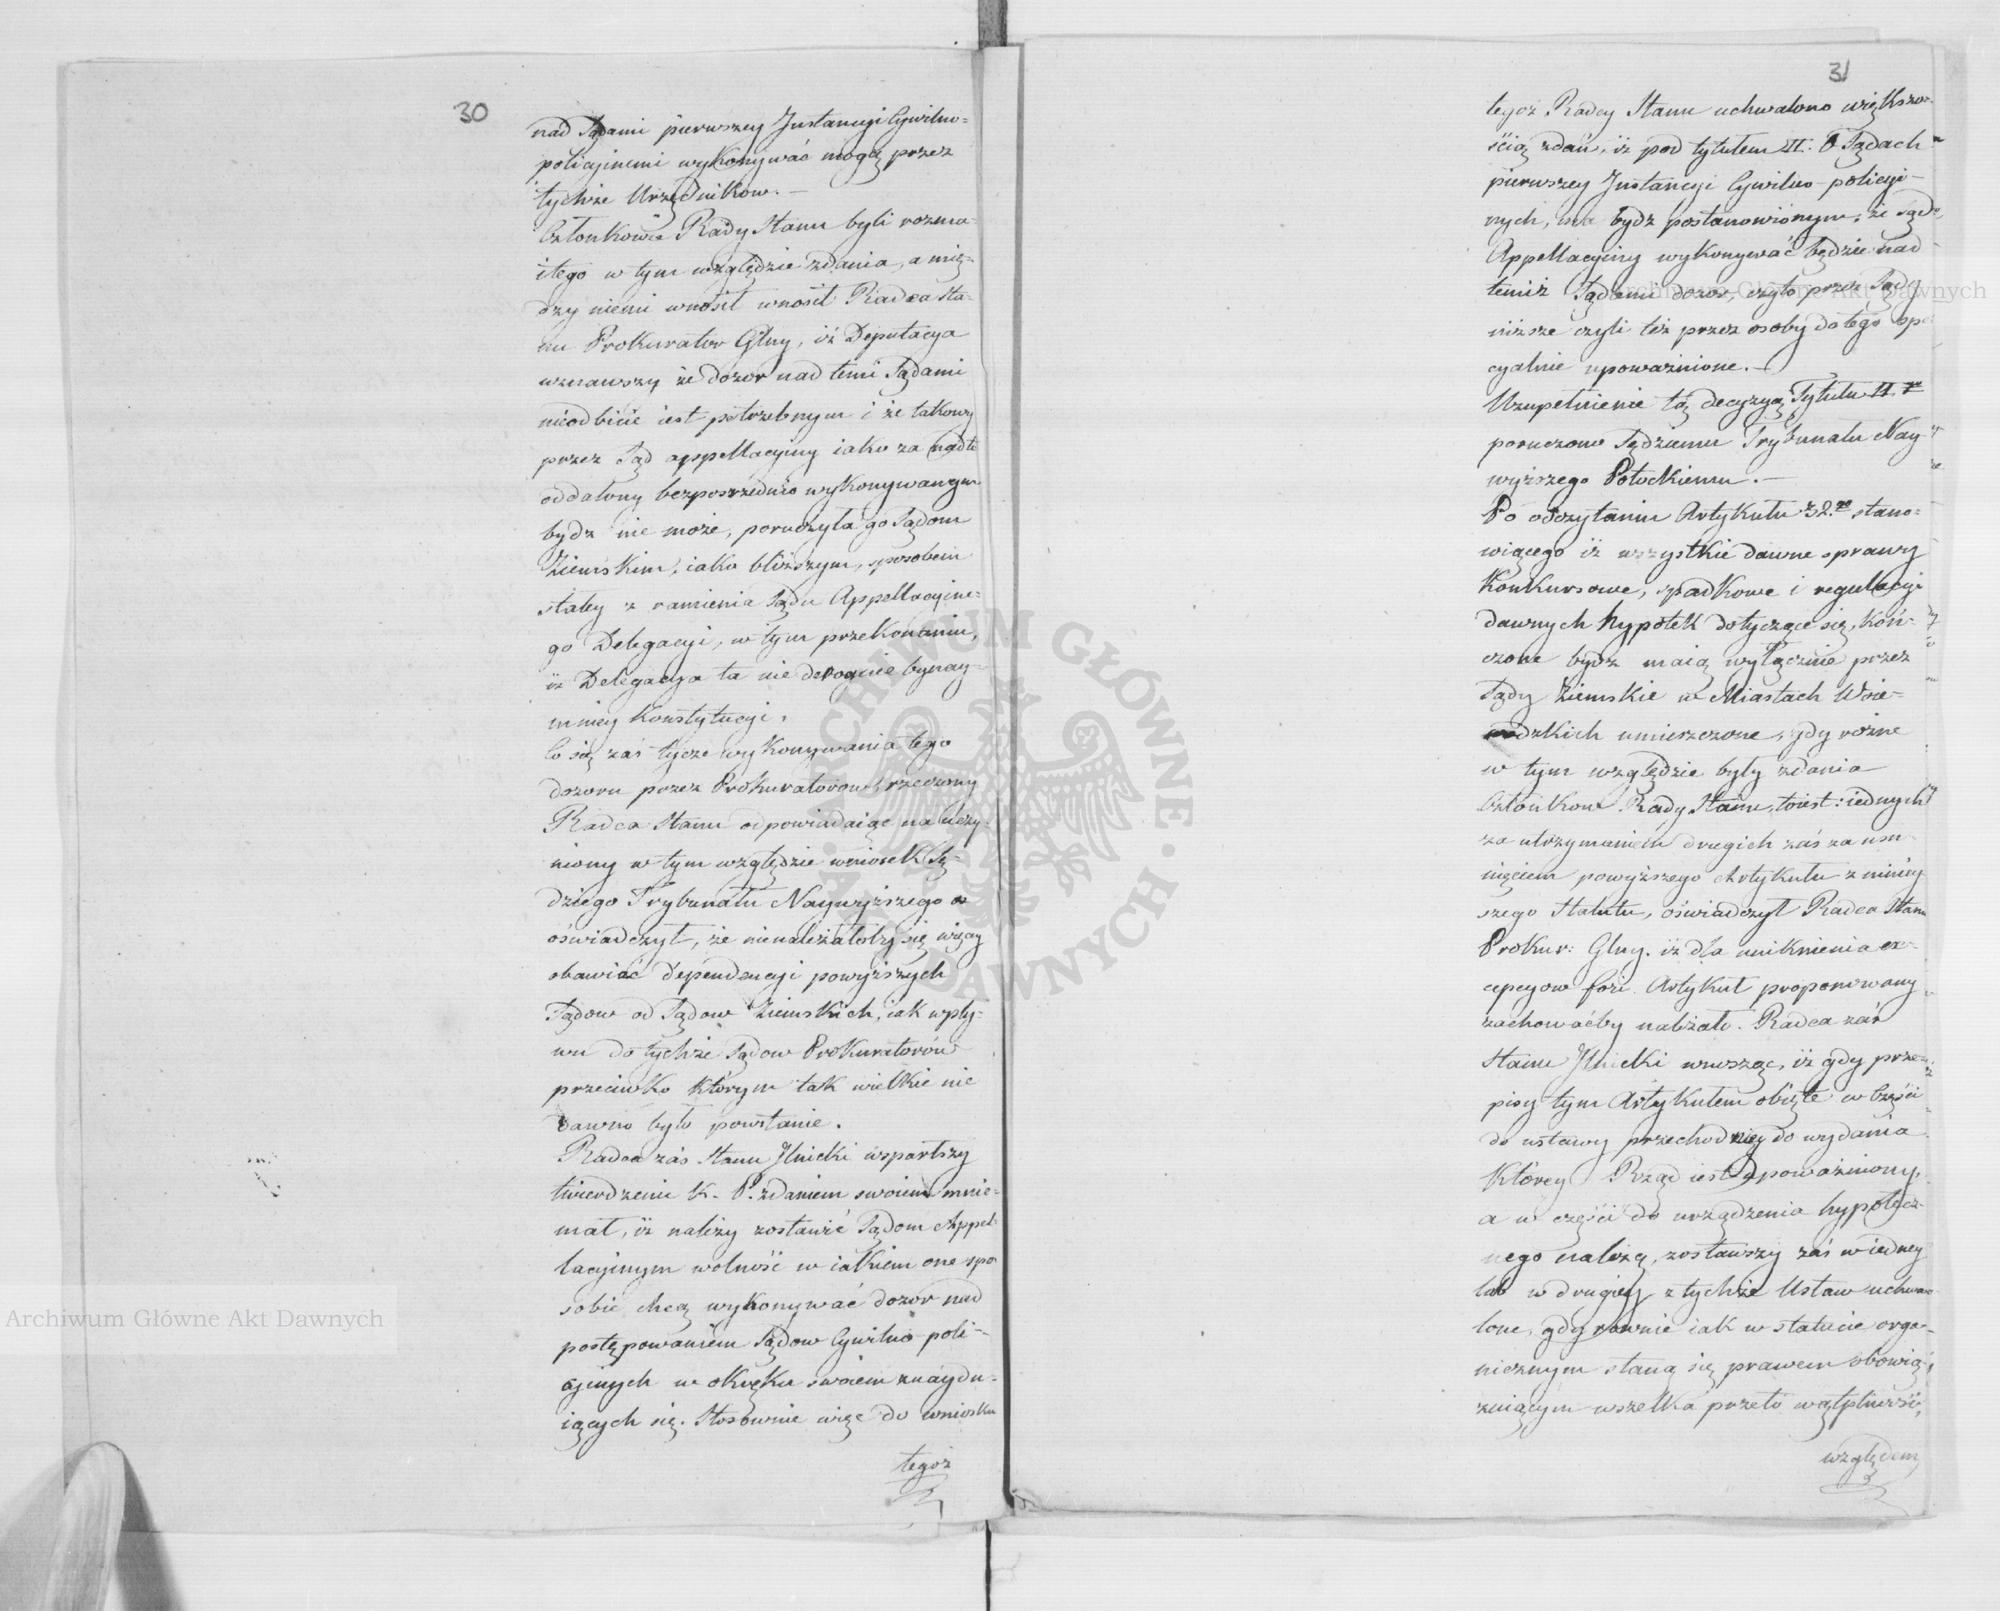 30
nad Sądami pierwszey Instancyi Cywilno-
policyjnemi wykonywać mogą przez
tychże Urzędników. —
Członkowie Rady Stanu byli rozma-
itego w tym względzie zdania, a mię-
dzy niemi wnosił wnosił Radca Sta-
nu Prokurator Glny, iż Deputacya
uznawszy że dozor nad temi Sądami
nieodbicie iest potrzebnym i że takowy
przez Sąd appellacyiny iako za nadto
oddalony bezpośrzednio wykonywanym
bydz nie może, poruczyła go Sądom
Ziemskim, iako bliższym, sposobem
stałey z ramienia Sądu Appellacyine-
go Delegacyi, w tym przekonaniu,
iż Delegacya ta nie deroguie bynay-
mniey Konstytucyi.
Co się zaś tycze wykonywania tego
dozoru przez Prokuratorow, rzeczony
Radca Stanu odpowiadaiąc na uczy-
niony w tym względzie wniosek Sę-
dziego Trybunału Naywyższego
oświadczył, że nienależałoby się więcey
obawiać dependencyi powyższych
Sądow od Sądow Ziemskich, iak wpły-
wu do tychże Sądow Prokuratorów
przeciwko którym tak wielkie nie
dawno było powstanie.
Radca zaś Stanu Ilnicki wsparłszy
twierdzenie K. P. zdaniem swoiem mnie-
mał, iż należy zostawić Sądom Appel-
lacyinym wolność w iakiem one spo
sobie chcą wykonywać dozór nad
postępowaniem Sądow Cywilno poli-
cyinych w okręku swoiem znaydu-
iących się. Stosownie więc do wniosku
tegoż
31
tegoż Radcy Stanu uchwalono większo-
ścią zdań, iż pod tytułem II. O Sądach
pierwszey Instancyi Cywilno-policyi-
nych, ma bydz postanowionym, że Sąd
Appellacyiny wykonywać będzie nad
temiż Sądami dozor, czyto przez Sądy
niższe czyli też przez osoby do tego spe
cyalnie upoważnione. —
Uzupełnienie tą decyzyą Tytułu II
poruczono Sędziemu Trybunału Nay
wyższego Potockiemu. —
Po odczytaniu Artykułu 32. stano-
wiącego iż wszystkie dawne sprawy
Konkursowe, spadkowe i regulacyi
dawnych hypotek dotyczące się, koń-
czone bydz maią wyłącznie przez
Sądy Ziemskie w Miastach Woie-
wodzkich umieszczone, gdy rożne
w tym względzie były zdania
Członkow Rady Stanu, toiest: iednych
za utrzymaniem drugich zaś za usu
nięciem powyższego Artykułu z niniey
szego Statutu, oświadczył Radca Stanu
Prokur: Glny. iż dla uniknienia ex-
cepcyow fori Artykuł proponowany
zachowaćby należało. Radca zaś
Stanu Ilnicki wnosząc, iż gdy prze-
pisy tym Artykułem obięte w części
do ustawy przechodniey do wydania
którey Rząd iest upoważniony,
a w części do urządzenia hypotecz-
nego należą, zostawszy zaś w iedney
lub w drugiey z tychże Ustaw uchwa-
lone, gdy rownie iak w statucie orga-
nicznym staną się prawem obowią-
zuiącym wszelka przeto wątpliwość,
względem
Archiwum Główne Akt Dawnych
Archiwum Główne Akt Dawnych
ARCHIWUM GŁÓWNE AKT DAWNYCH